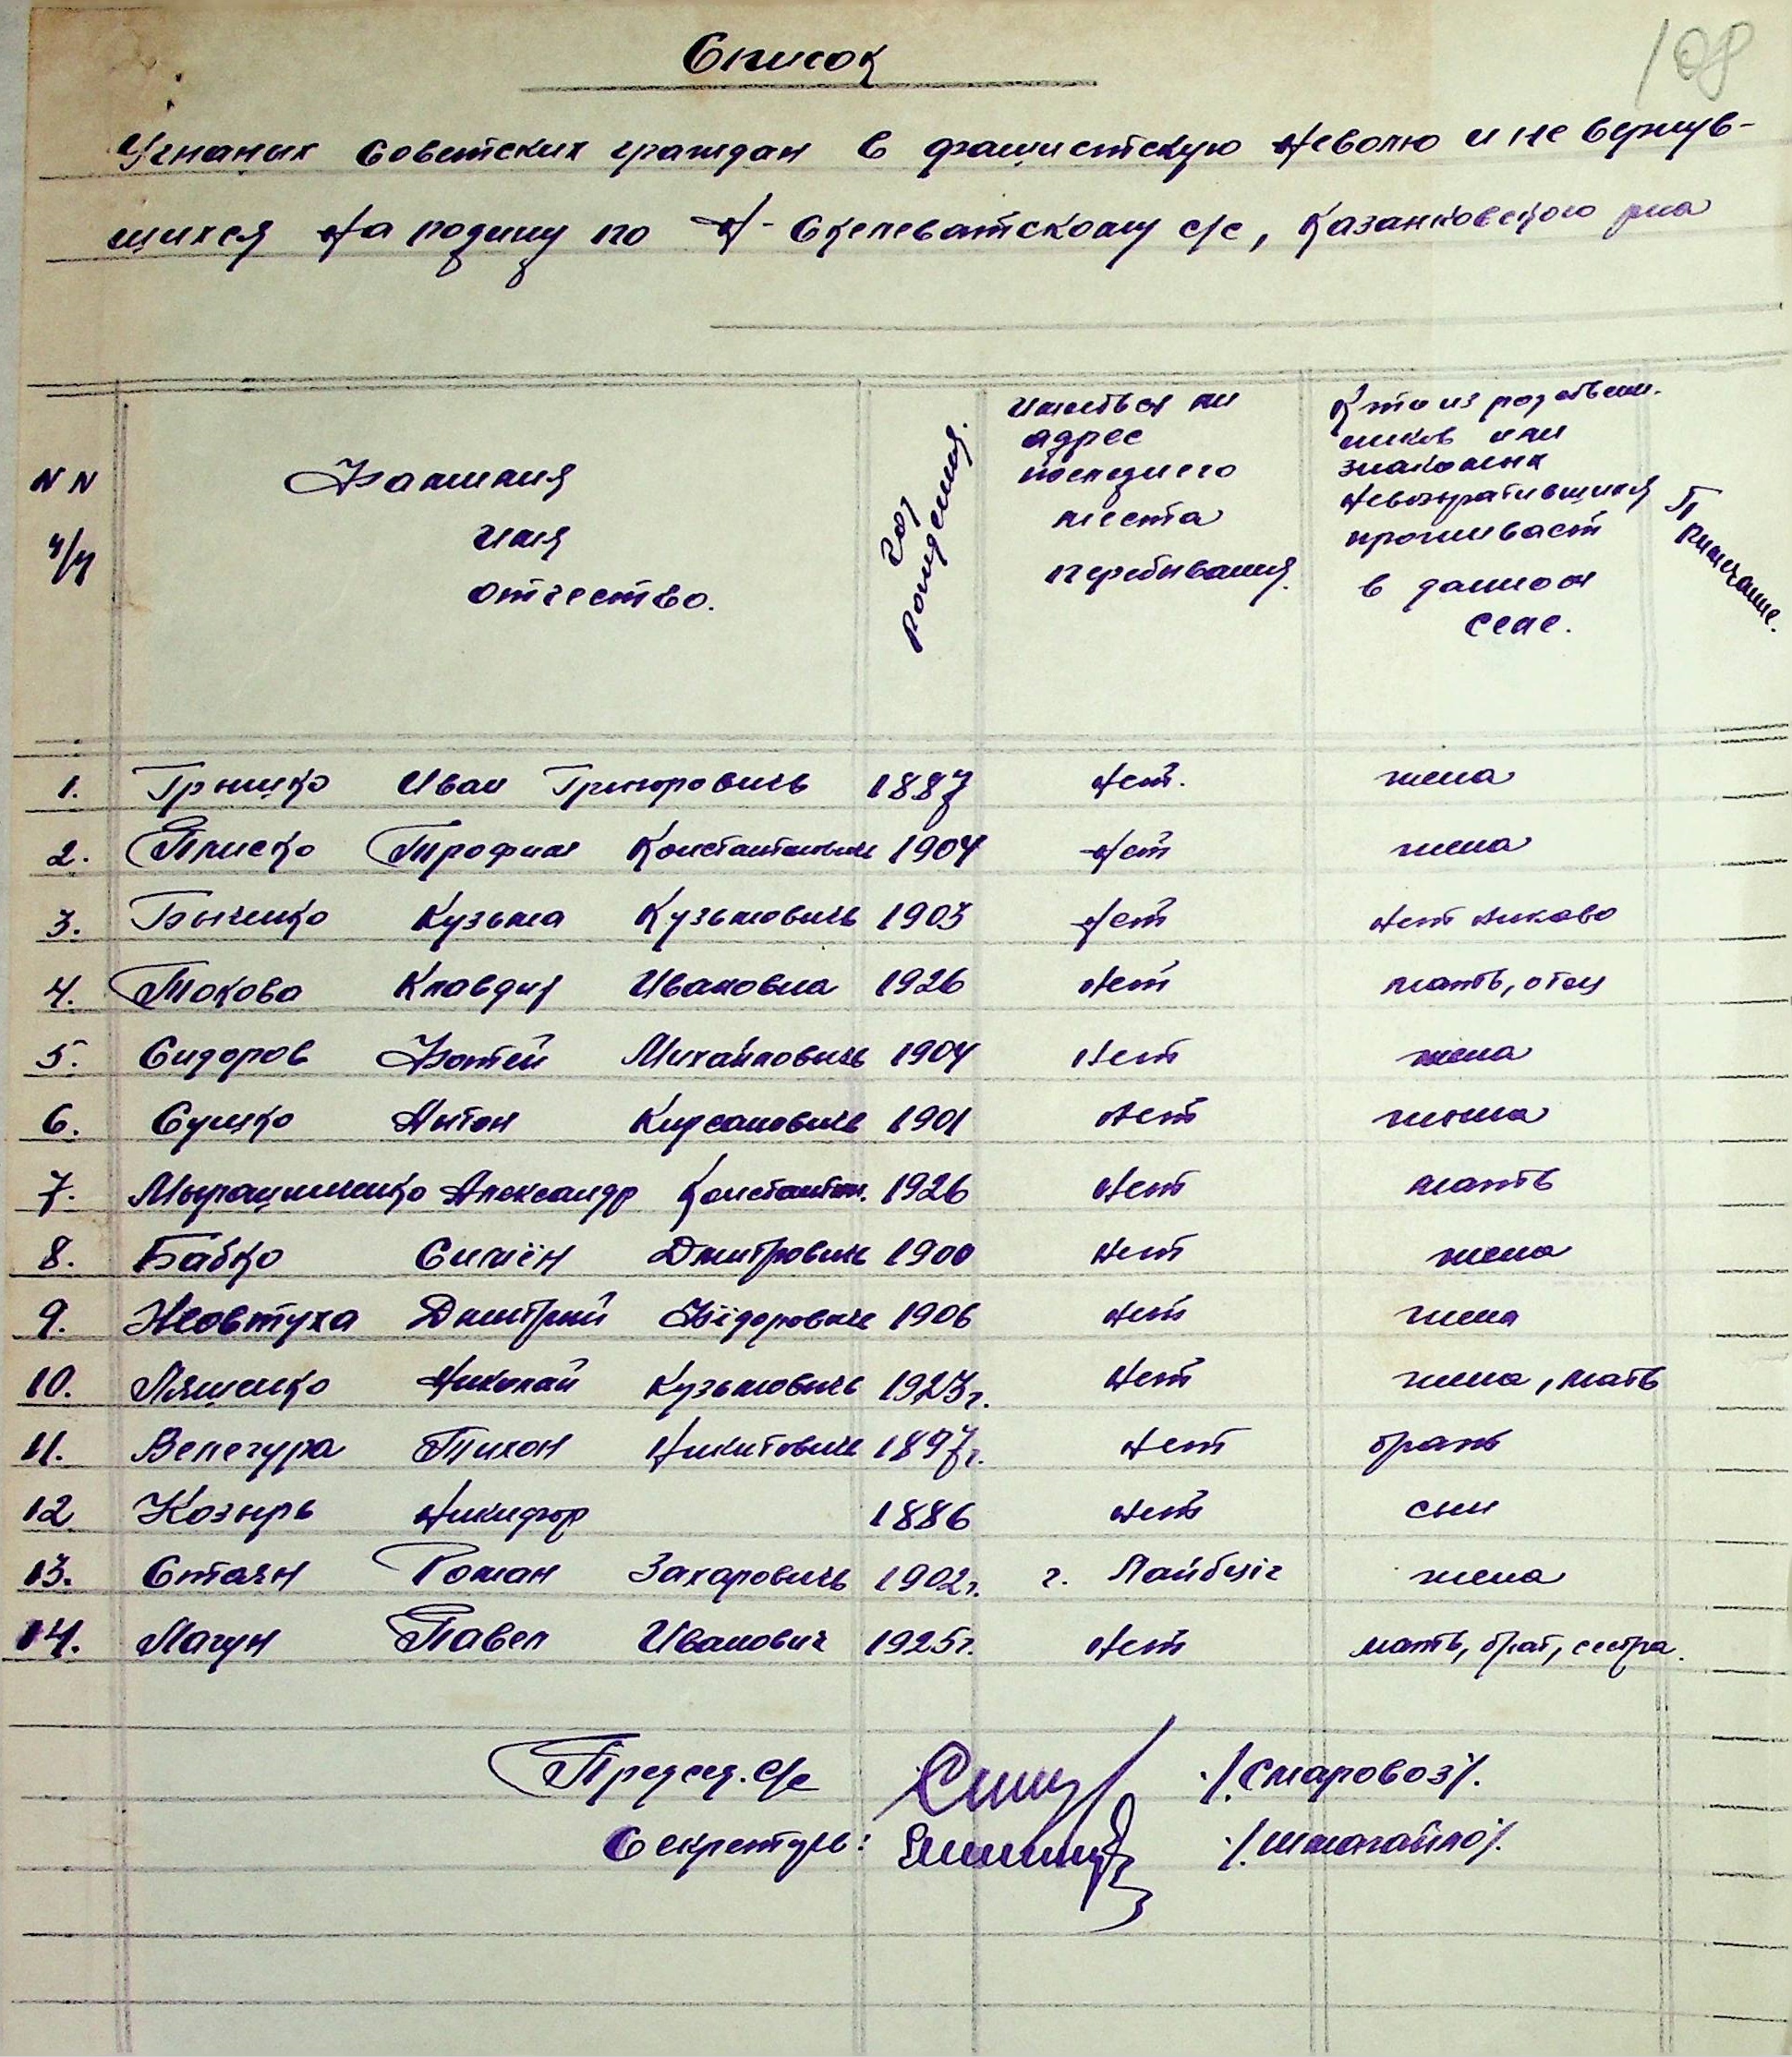 108
Список
Угнаных Советских граждан в фашистскую неволю и не вернув-
шихся на родину по Н-Скелеватскому с/с, Казанковского р-на
NN
п/п
Фамилия
имя
отчество.
год
рождения.
имееться ли
адрес
последнего
места
перебывания.
Кто из родственн.
ников или
знакомых
невозратившихся
проживает
в данном
селе.
Примечание.
1. Грышко Иван Григорович 1887 нет. жена
2. Плиско Трофим Константинович 1904 нет жена
3. Быченко Кузьма Кузьмовичь 1903 нет нет никаво
4. Токова Клавдия Ивановна 1926 нет мать, отец
5. Сидоров Фотей Михайловичь 1904 нет жена
6. Сушко Антон Кирсановичь 1901 нет жена
7. Александр Константин. 1926 нет мать
8. Бабко Симён Дмитровичь 1900 нет жена
9. Невтуха Дмитрий Фёдорович 1906 нет жена
10. Лященко Николай Кузьмовичь 1923г. нет жена, мать
11. Велегура Тихон Никитович 1897г. нет брать
12 Козырь Никифор 1886 нет сын
13. Стаян Роман Захаровичь 1902г. г. Лайбціг жена
14. Лагун Павел Иванович 1925г. нет мать, брат, сестра.
Председ. с/с /Смаровоз/.
Секретарь: /Шмагайло/.